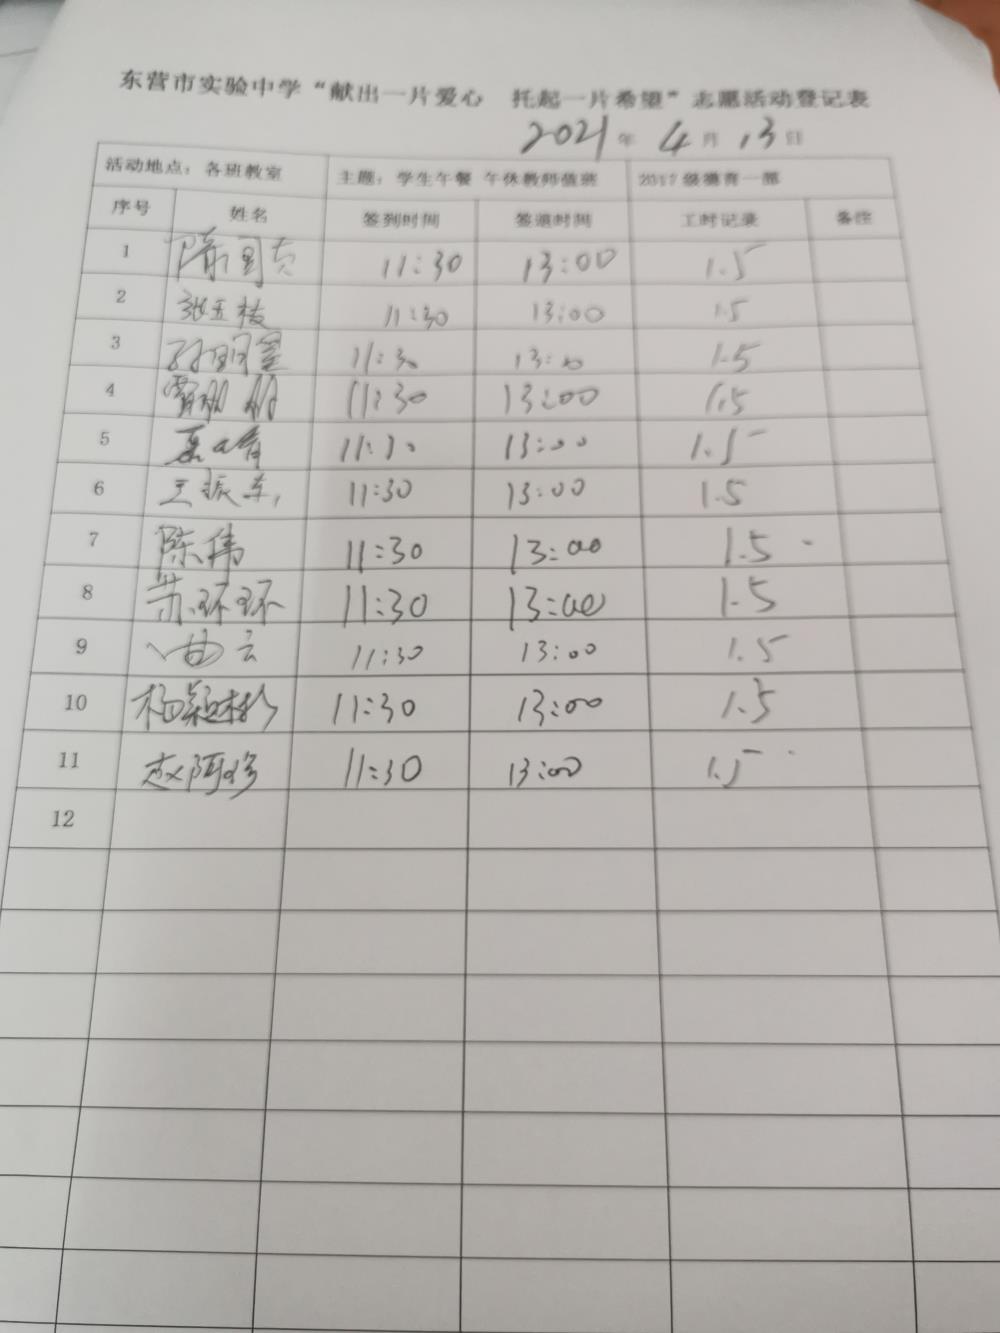 东营市实验中学“献出一片爱心 托起一片希望”志愿活动登记表
2021年4月13日
活动地点：各班教室 主题：学生午餐 午休教师值班 2017级德育一部
序号 姓名 签到时间 签退时间 工时记录 备注
1 11:30 13:00 1.5
2 张玉枝 11:30 13:00 1.5
3 11:30 13:00 1.5
4 11:30 13:00 1.5
5 11:30 13:00 1.5
6 王振东 11:30 13:00 1.5
7 陈伟 11:30 13:00 1.5
8 苏环环 11:30 13:00 1.5
9 11:30 13:00 1.5
10 杨颖彬 11:30 13:00 1.5
11 赵阿珍 11:30 13:00 1.5
12